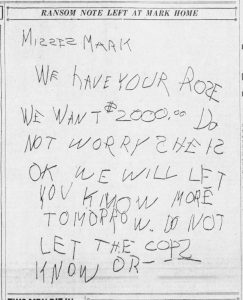 RANSOM NOTE LEFT AT MARK HOME
MIZZEZ MARK
WE HAVE YOUR ROZE
WE WANT $2000.00 DO
NOT WORRY ZHE IZ
OK WE WILL LET
YOU KNOW MORE
TOMORROW. DO NOT
LET THE COPZ
KNOW OR—